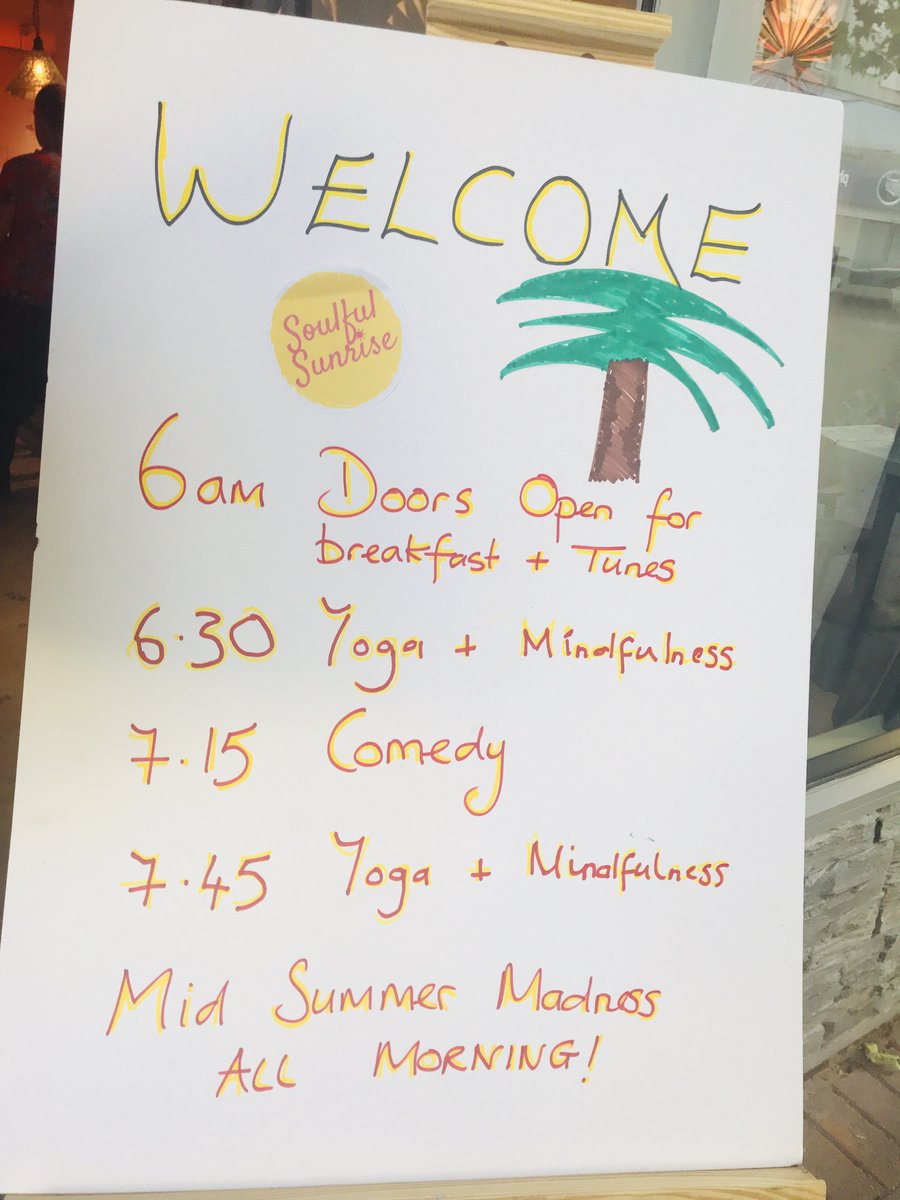 WELCOME
Soulful
Sunrise
6am Doors Open for
breakfast + Tunes
6.30 Yoga + Mindfulness
7.15 Comedy
7.45 Yoga + Mindfulness
Mid Summer Madness
ALL MORNING!